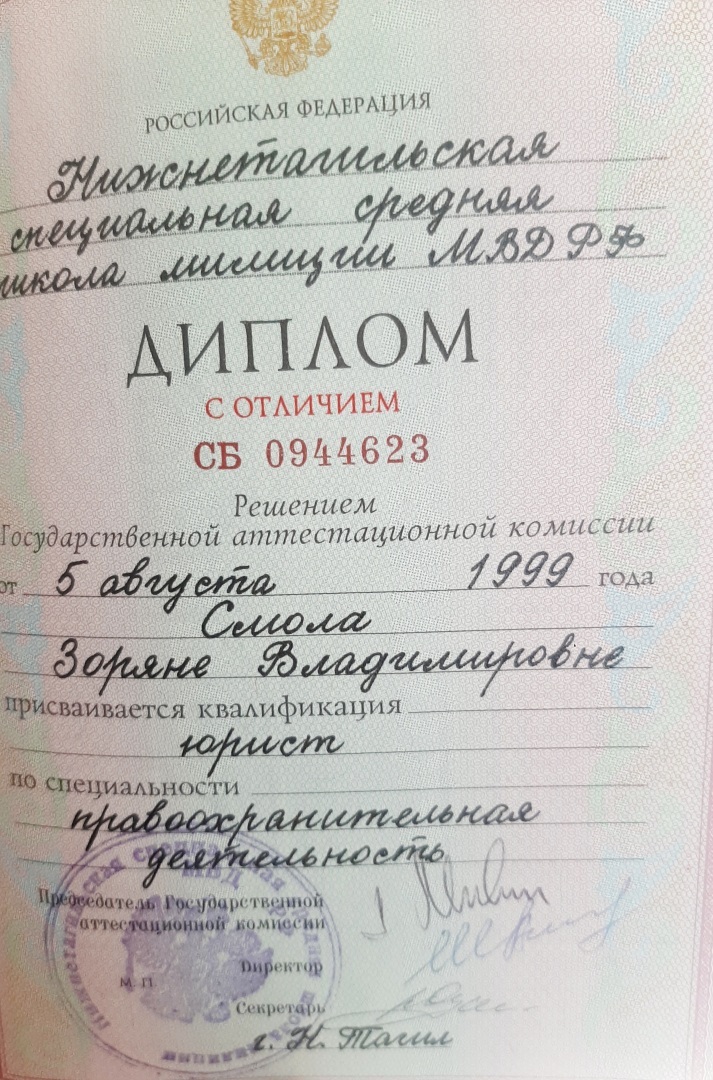 РОССИЙСКАЯ ФЕДЕРАЦИЯ
Нижнетагильская
специальная средняя
школа милиции МВД РФ
ДИПЛОМ
С ОТЛИЧИЕМ
СБ 0944623
Решением
Государственной аттестационной комиссии
от 5 августа 1999 года
Смола
Зоряне Владимировне
присваивается квалификация
юрист
по специальности
правоохранительная
деятельность
Председатель Государственной
аттестационной комиссии
Директор
М. П.
Секретарь
г. Н. Тагил